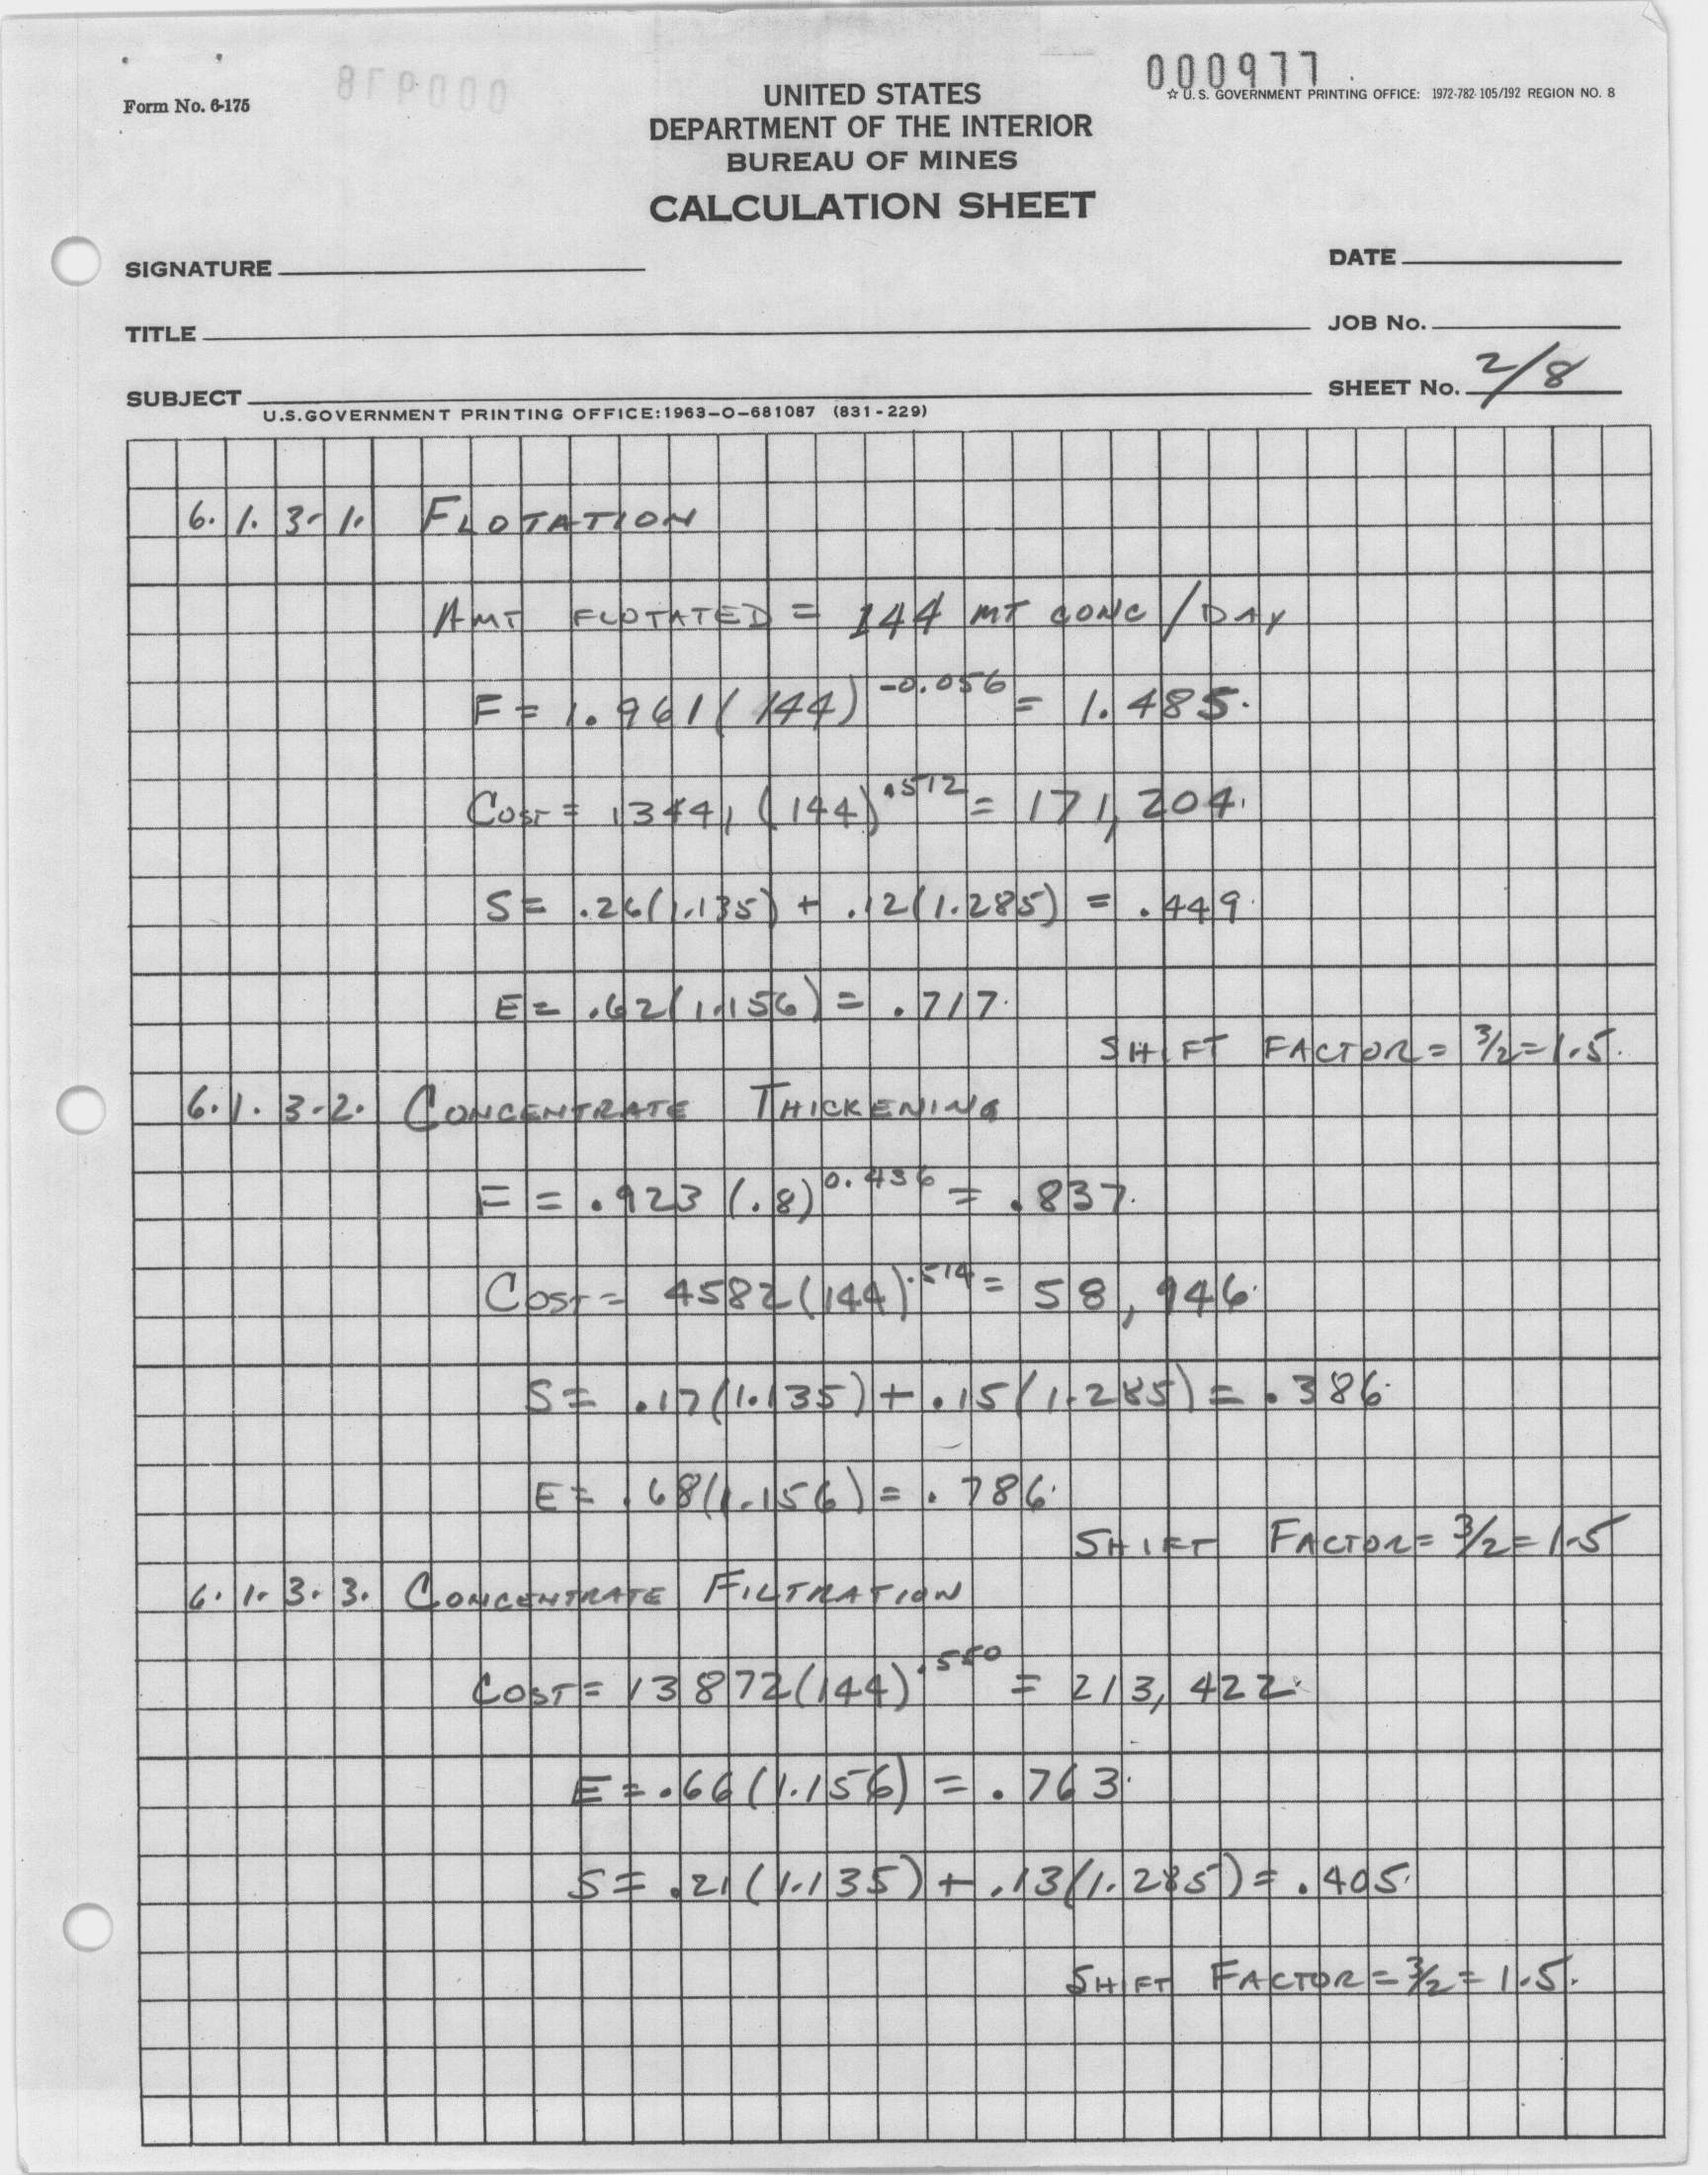 000977
000978
Form No. 6-175
UNITED STATES
☆ U. S. GOVERNMENT PRINTING OFFICE: 1972-782-105/192 REGION NO. 8
DEPARTMENT OF THE INTERIOR
BUREAU OF MINES
CALCULATION SHEET
SIGNATURE
DATE
TITLE
JOB No.
SUBJECT
SHEET No. 2/8
U.S.GOVERNMENT PRINTING OFFICE:1963-O-681087 (831-229)
6.1.3.1. FLOTATION
AMT FLOTATED = 144 MT CONC / DAY
F = 1.961(144)^-0.056 = 1.485.
COST = 13441(144)^.512 = 171,204.
S = .26(1.135) + .12(1.285) = .449.
E = .62(1.156) = .717.
SHIFT FACTOR = 3/2 = 1.5.
6.1.3.2. CONCENTRATE THICKENING
F = .923(.8)^0.436 = .837.
COST = 4582(144)^.514 = 58,946.
S = .17(1.135) + .15(1.285) = .386.
E = .68(1.156) = .786.
SHIFT FACTOR = 3/2 = 1.5
6.1.3.3. CONCENTRATE FILTRATION
COST = 13872(144)^.550 = 213,422.
E = .66(1.156) = .763.
S = .21(1.135) + .13(1.285) = .405.
SHIFT FACTOR = 3/2 = 1.5.